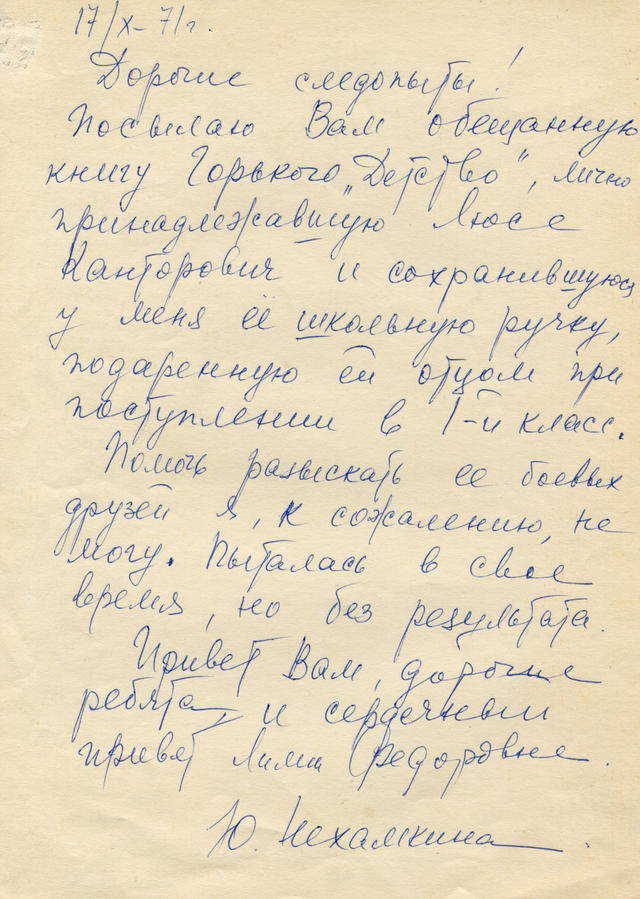 17/X-71г.
Дорогие следопыты!
Посылаю Вам обещанную
книгу Горького „Детство", лично
принадлежавшую Люсе
Канторович и сохранившуюся
у меня её школьную ручку,
подаренную ей отцом при
поступлении в 1-й класс.
Помочь разыскать ее боевых
друзей я, к сожалению, не
могу. Пыталась в свое
время, но без результата.
Привет Вам, дорогие
ребята, и сердечный
привет Лилии Федоровне.
Ю. Нехамкина